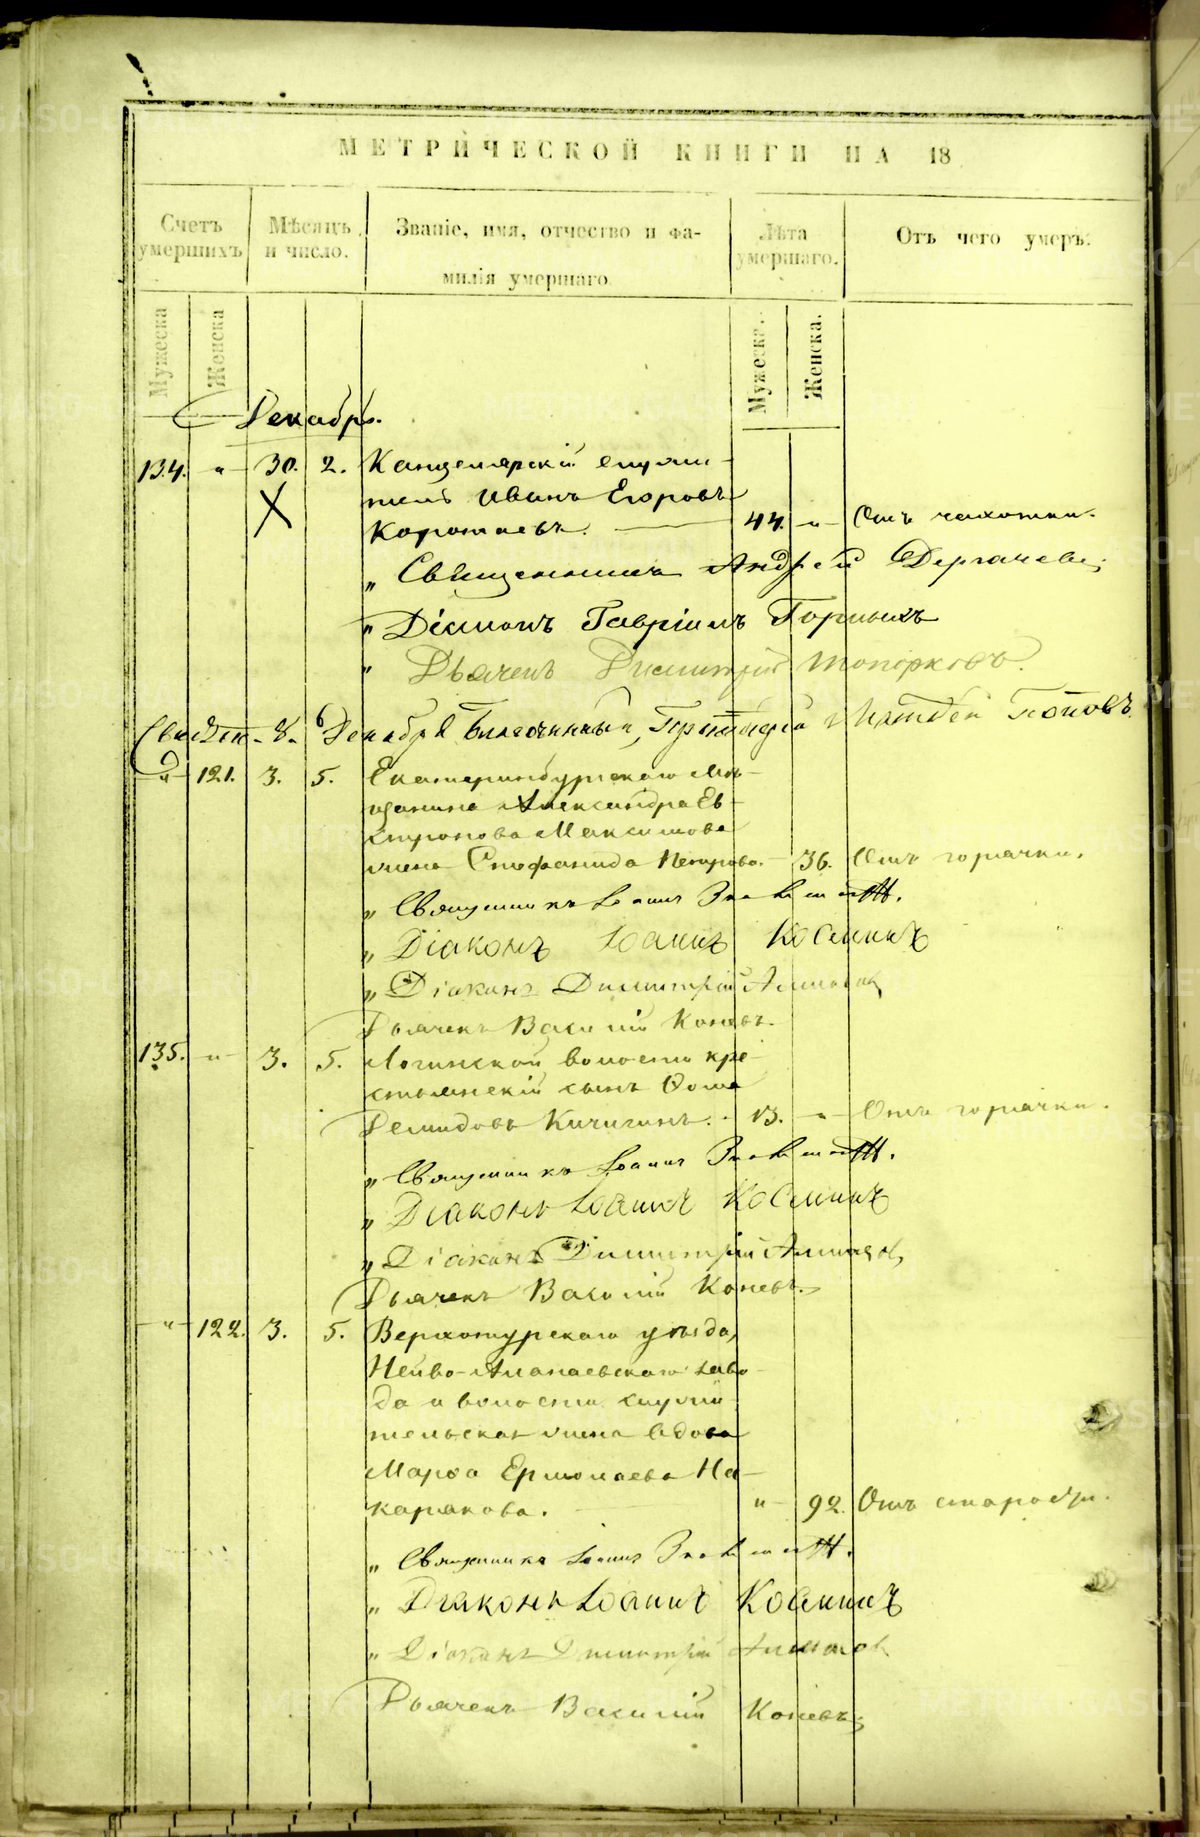 МЕТРИЧЕСКОЙ КНИГИ НА 18
Счетъ умершихъ.
Мѣсяцъ и число.
Званіе, имя, отчество и фамилія умершаго.
Лѣта умершаго.
Отъ чего умеръ.
Мужеска
Женска
Мужеска.
Женска.
Декабрь.
134. " 30. 2. Канцелярскій служи-
тель Иванъ Егоровъ
Коротаевъ. 44. " Отъ чахотки.
" Священникъ Андрей Дергачевъ;
" Діаконъ Гавріилъ Горныхъ
" Дьячекъ Димитрій Топорковъ.
8. Декабря Благочинный, Матвей Поповъ
" 121. 3. 5. Екатеринбургскаго мѣ-
щанина Александра Ев-
Максимова
жена Стефанида Петрова. 36. Отъ горячки.
" Священникъ Іоаннъ
" Діаконъ Іоаннъ Косминъ
" Діаконъ Димитрій
Дьячекъ Василій Коневъ.
135. " 3. 5. Логинской волости кре-
стьянскій сынъ Ѳома
Демидовъ Кичигинъ. 13. " Отъ горячки.
" Священникъ Іоаннъ
" Діаконъ Іоаннъ Косминъ
" Діаконъ Димитрій
Дьячекъ Василій Коневъ.
" 122. 3. 5. Верхотурскаго уѣзда,
Нейво-Алапаевскаго заво-
да и волости служи-
тельская жена вдова
Марѳа Ермолаева На-
карякова. " 92. Отъ старости.
" Священникъ Іоаннъ
" Діаконъ Іоаннъ Косминъ
" Діаконъ Димитрій
Дьячекъ Василій Коневъ;